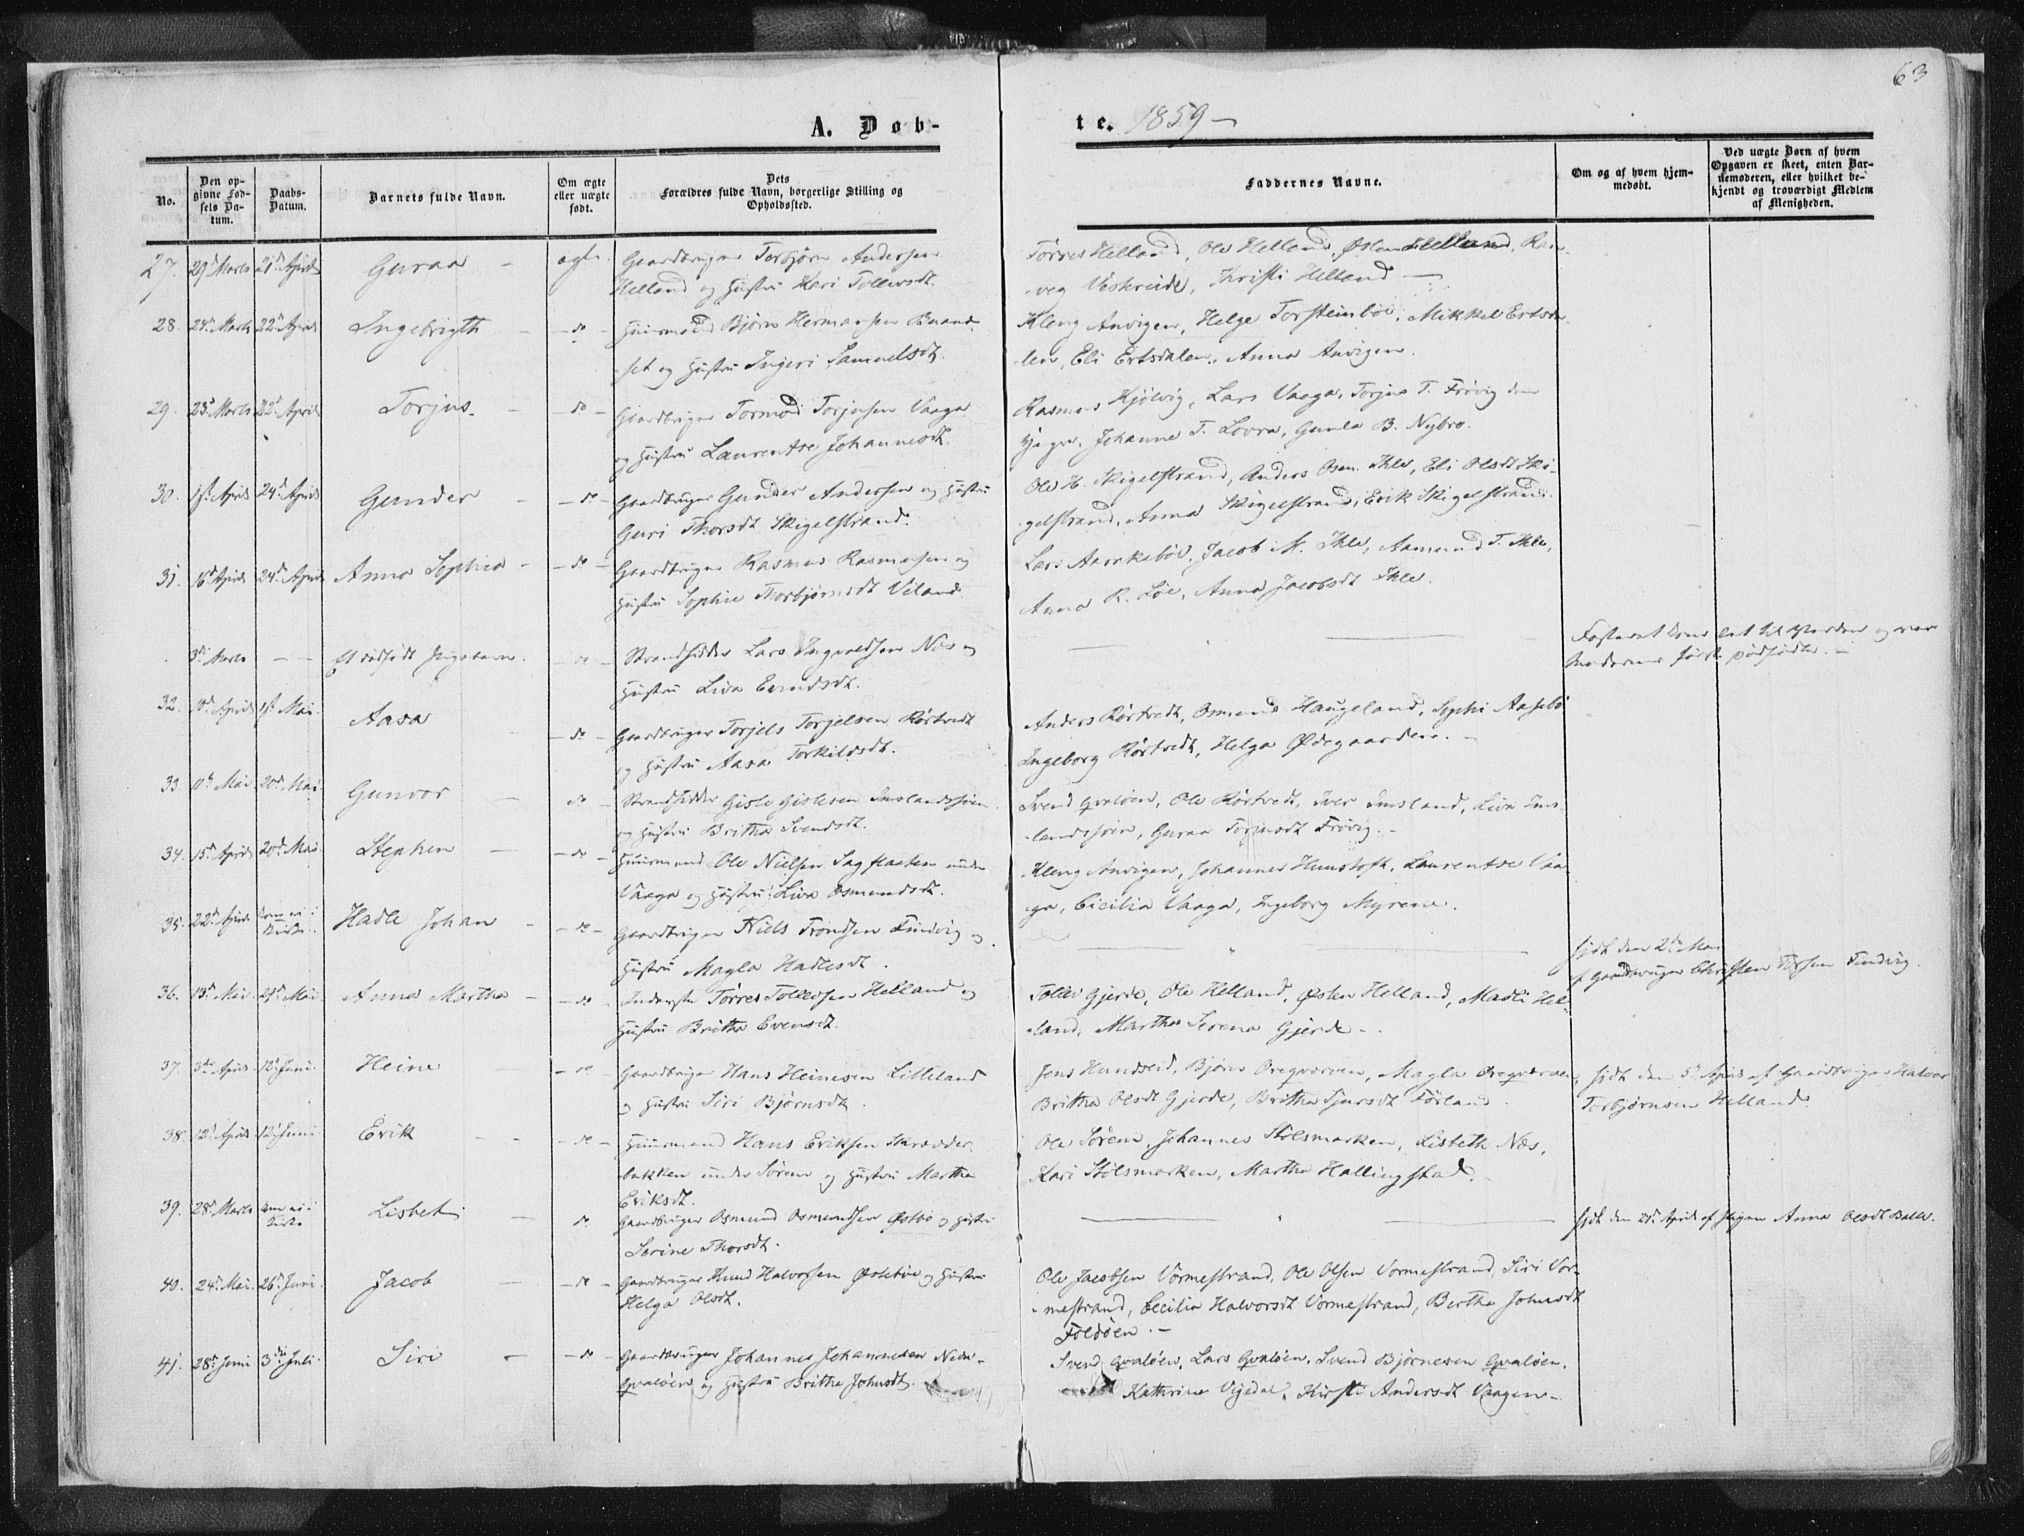 63
A. Døb-
te. 1859 —
No.
Den op-
givne Fød-
sels Da-
tum.
Daabs-
Datum.
Barnets fulde Navn.
Om ægte
eller uægte
født.
Dets
Forældres fulde Navn, borgerlige Stilling og
Opholdssted.
Faddernes Navne.
Om og af hvem hjem-
medøbt.
Ved uægte Børn af hvem
Opgaven er skeet, enten Bar-
nemoderen, eller hvilket be-
kjendt og troværdigt Medlem
af Menigheden.
27. 29de Marts 21de April Guraa — ægte. Gaardbruger Torbjørn Andersen
Helland og Hustru Kari Tollevsdt.
Tørres Helland, Ole Helland, Østen Helland, Ran-
veg Veskreide, Kirsti Helland —
28. 24de Marts 22de April Ingebrigth — do — Huusmand Bjørn Hermansen Buand-
set og Hustru Ingeri Samuelsdt.
Kleng Anvigen, Helge Torsteinbøe, Mikkel Ertsda-
len, Eli Ertsdalen, Anna Anvigen.
29. 23de Marts 22de April Torjus. — do — Gaardbruger Tormod Torjusen Vaaga
og Hustru Laurentse Johannesdt.
Rasmus Kjølvig, Lars Vaaga, Torjus T. Frøvig den
yngre, Johanne T. Lovra, Gunla B. Nybro.
30. 1ste April 24de April Gunder — do — Gaardbruger Gunder Andersen og Hustru
Guri Thorsdt Skigelstrand.
Ole H. Skigelstrand, Anders Osm. Ihle, Eli Olsdt Ski-
gelstrand, Anna Skigelstrand, Erik Skigelstrand.
31. 16de April 24de April Anna Sophia — do — Gaardbruger Rasmus Rasmusen og
Hustru Sophie Thorbjørnsdt Veland.
Lars Aarrkebøe, Jacob M. Ihle, Aamund T. Ihle,
Anna R. Løe, Anna Jacobsdt Ihle.
3die Marts — — Et dødfødt Pigebarn. — do — Strandsidder Lars Ingvaldsen Næs og
Hustru Liva Evindsdt.
Fosteret kom let til Verden og var
Moderens første dødfødte. —
32. 10de April 1ste Mai Aasa — do — Gaardbruger Torjels Torjelsen Rørtvedt
og Hustru Aasa Torkildsdt.
Anders Rørtvedt, Osmund Haugeland, Sophi Aasebø
Ingeborg Rørtvedt, Helga Ødegaarden. —
33. 11te Mai 20de Mai Gunvor — do — Strandsidder Gisle Gislesen Imslandsjøen
og Hustru Britha Svendsdt.
Svend Qvaløen, Ole Rørtvedt, Iver Imsland, Liva Ims-
landsjøen, Guraa Torjusdt Frøvig. —
34. 15de April 20de Mai Stephen — do — Huusmand Ole Nielsen Sagflaaten under
Vaaga og Hustru Liva Osmundsdt.
Kleng Anvigen, Johannes Hunstoft, Laurentse Vaa-
ga, Cicilia Vaaga, Ingeborg Myrene.
35. 22de April kom ei i Kirke. Hadle Johan — do — Gaardbruger Niels Trondsen Findvig og
Hustru Magla Hadlesdt.
hjdt den 2den Mai
af Gaardbruger Christen Tørsen Findvig.
36. 13de Mai 29de Mai Anna Martha — do — Inderste Tørres Tollefsen Helland og
Hustru Britha Evensdt.
Tollev Gjerde, Ole Helland, Østen Helland, Madli Hel-
land, Martha Serena Gjerde —
37. 3die April 12te Juni. Heine — do — Gaardbruger Hans Heinesen Lilleland
og Hustru Siri Bjørnsdt.
Jens Hundseid, Bjørn Øreqværven, Magla Øreqværven,
Britha Olsdt Gjerde, Britha Sjursdt Førland.
hjdt den 5te April af Gaardbruger Halvor
Torbjørnsen Helland.
38. 12te April 12te Juni Erik — do — Huusmand Hans Eriksen Skrædder-
bakken under Sørem og Hustru Martha
Eriksdt.
Ole Sørem, Johannes Stølsmarken, Lisbeth Næs,
Kari Stølsmarken, Martha Hallingstad.
39. 28de Marts kom ei i Kirke Lisbet — do Gaardbruger Osmund Osmundsen Østbø og Hustru
Serine Thorsdt.
hjdt den 21de April af Pigen Anna Olsdt Bakke.
40. 24de Mai. 26de Juni. Jacob — do — Gaardbruger Knud Halvorsen Østebøe og Hustru
Helga Olsdt.
Ole Jacobsen Vormestrand, Ole Olsen Vormestrand, Siri Vor-
mestrand, Cecilia Halvorsdt Vormestrand, Bertha Johnsdt
Foldøen. —
41. 28de Juni 3die Juli. Siri — do — Gaardbruger Johannes Johannesen Nedre-
Qvaløen og Hustru Britha Johnsdt.
Svend Qvaløen, Lars Qvaløen, Svend Bjørnesen Qvaløen.
Kathrine Vejedal, Kirsti Andersdt Vaagen —